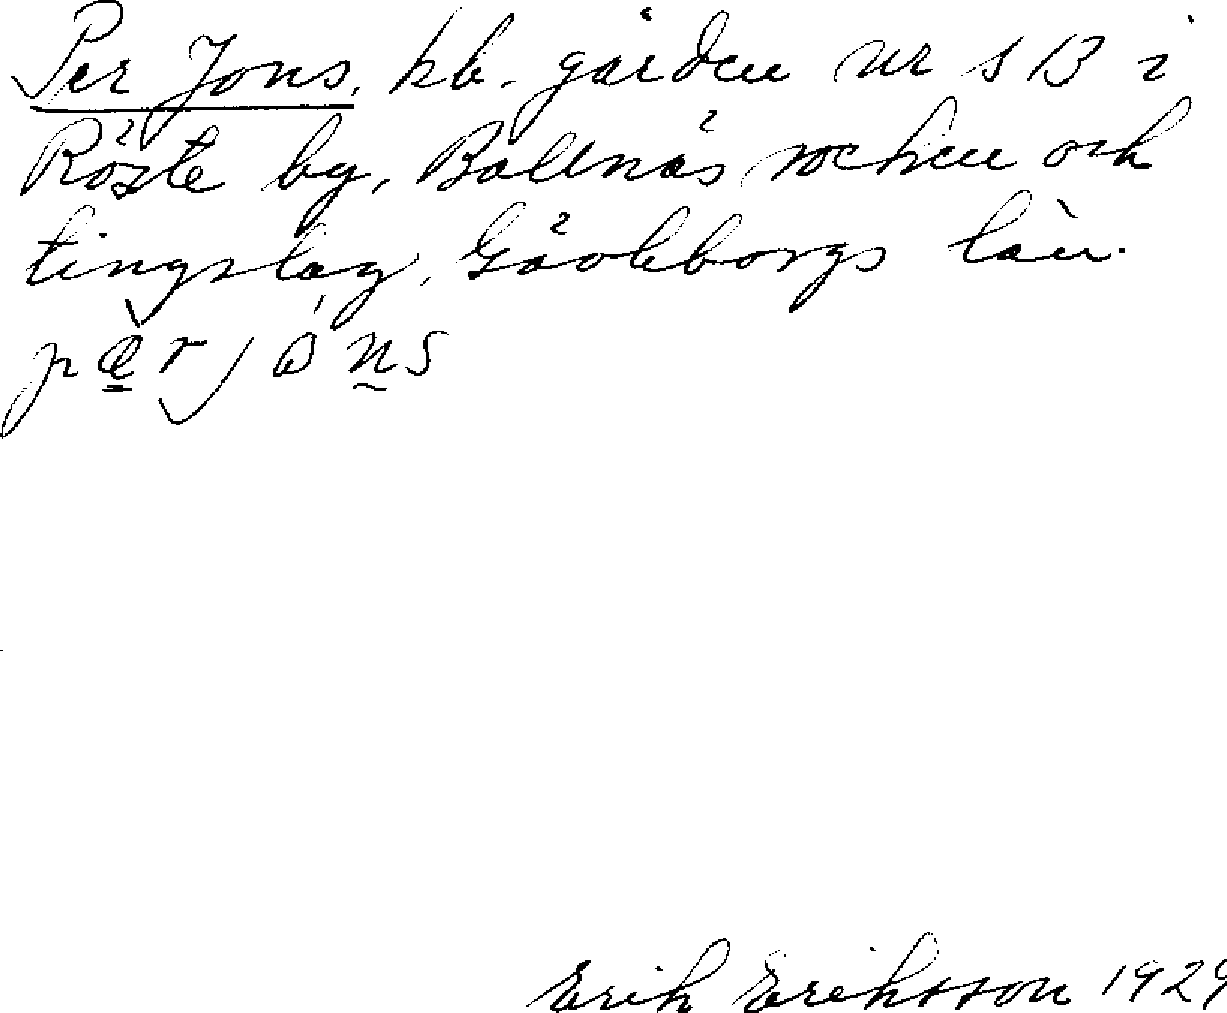 Per Jons, kb. gården nr 1 B i
Röste by, Bollnäs socken och
tingslag, Gävleborgs län.
Erik Eriksson 1929